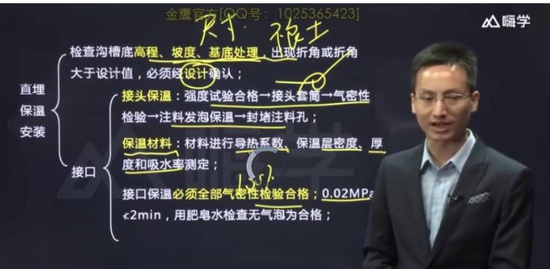 金鹰官方[QQ号：1025365423]
尺寸
嗨学
检查沟槽底高程、坡度、基底处理，出现折角或折角
大于设计值，必须经设计确认；
直埋保温安装
接头保温：强度试验合格→接头套筒→气密性
检验→注料发泡保温→封堵注料孔；
接口
保温材料：材料进行导热系数、保温层密度、厚
度和吸水率测定；
接口保温必须全部气密性检验合格；0.02MPa
<2min，用肥皂水检查无气泡为合格；